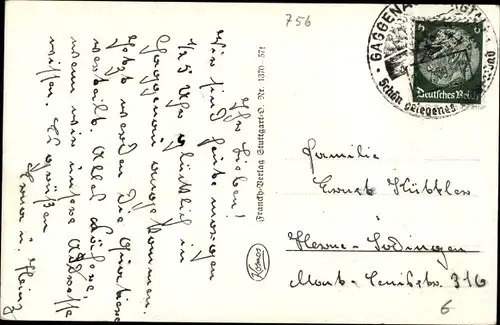 756
GAGGENAU
Schön gelegenes
Deutsches Reich
Ihr Lieben!
Wir sind heute morgen
1/25 Uhr glücklich in
Gaggenau angekommen.
Jetzt werden die Quartiere
verteilt. Alles Nähere,
wenn wir unsere Adresse
wissen. Es grüßen
Erna u. Heinz
Franckh-Verlag Stuttgart-O. Nr. 1370-571
Kosmos
Familie
Ernst Küttler
Herne-Sodingen
Mont-Cenisstr. 316
6